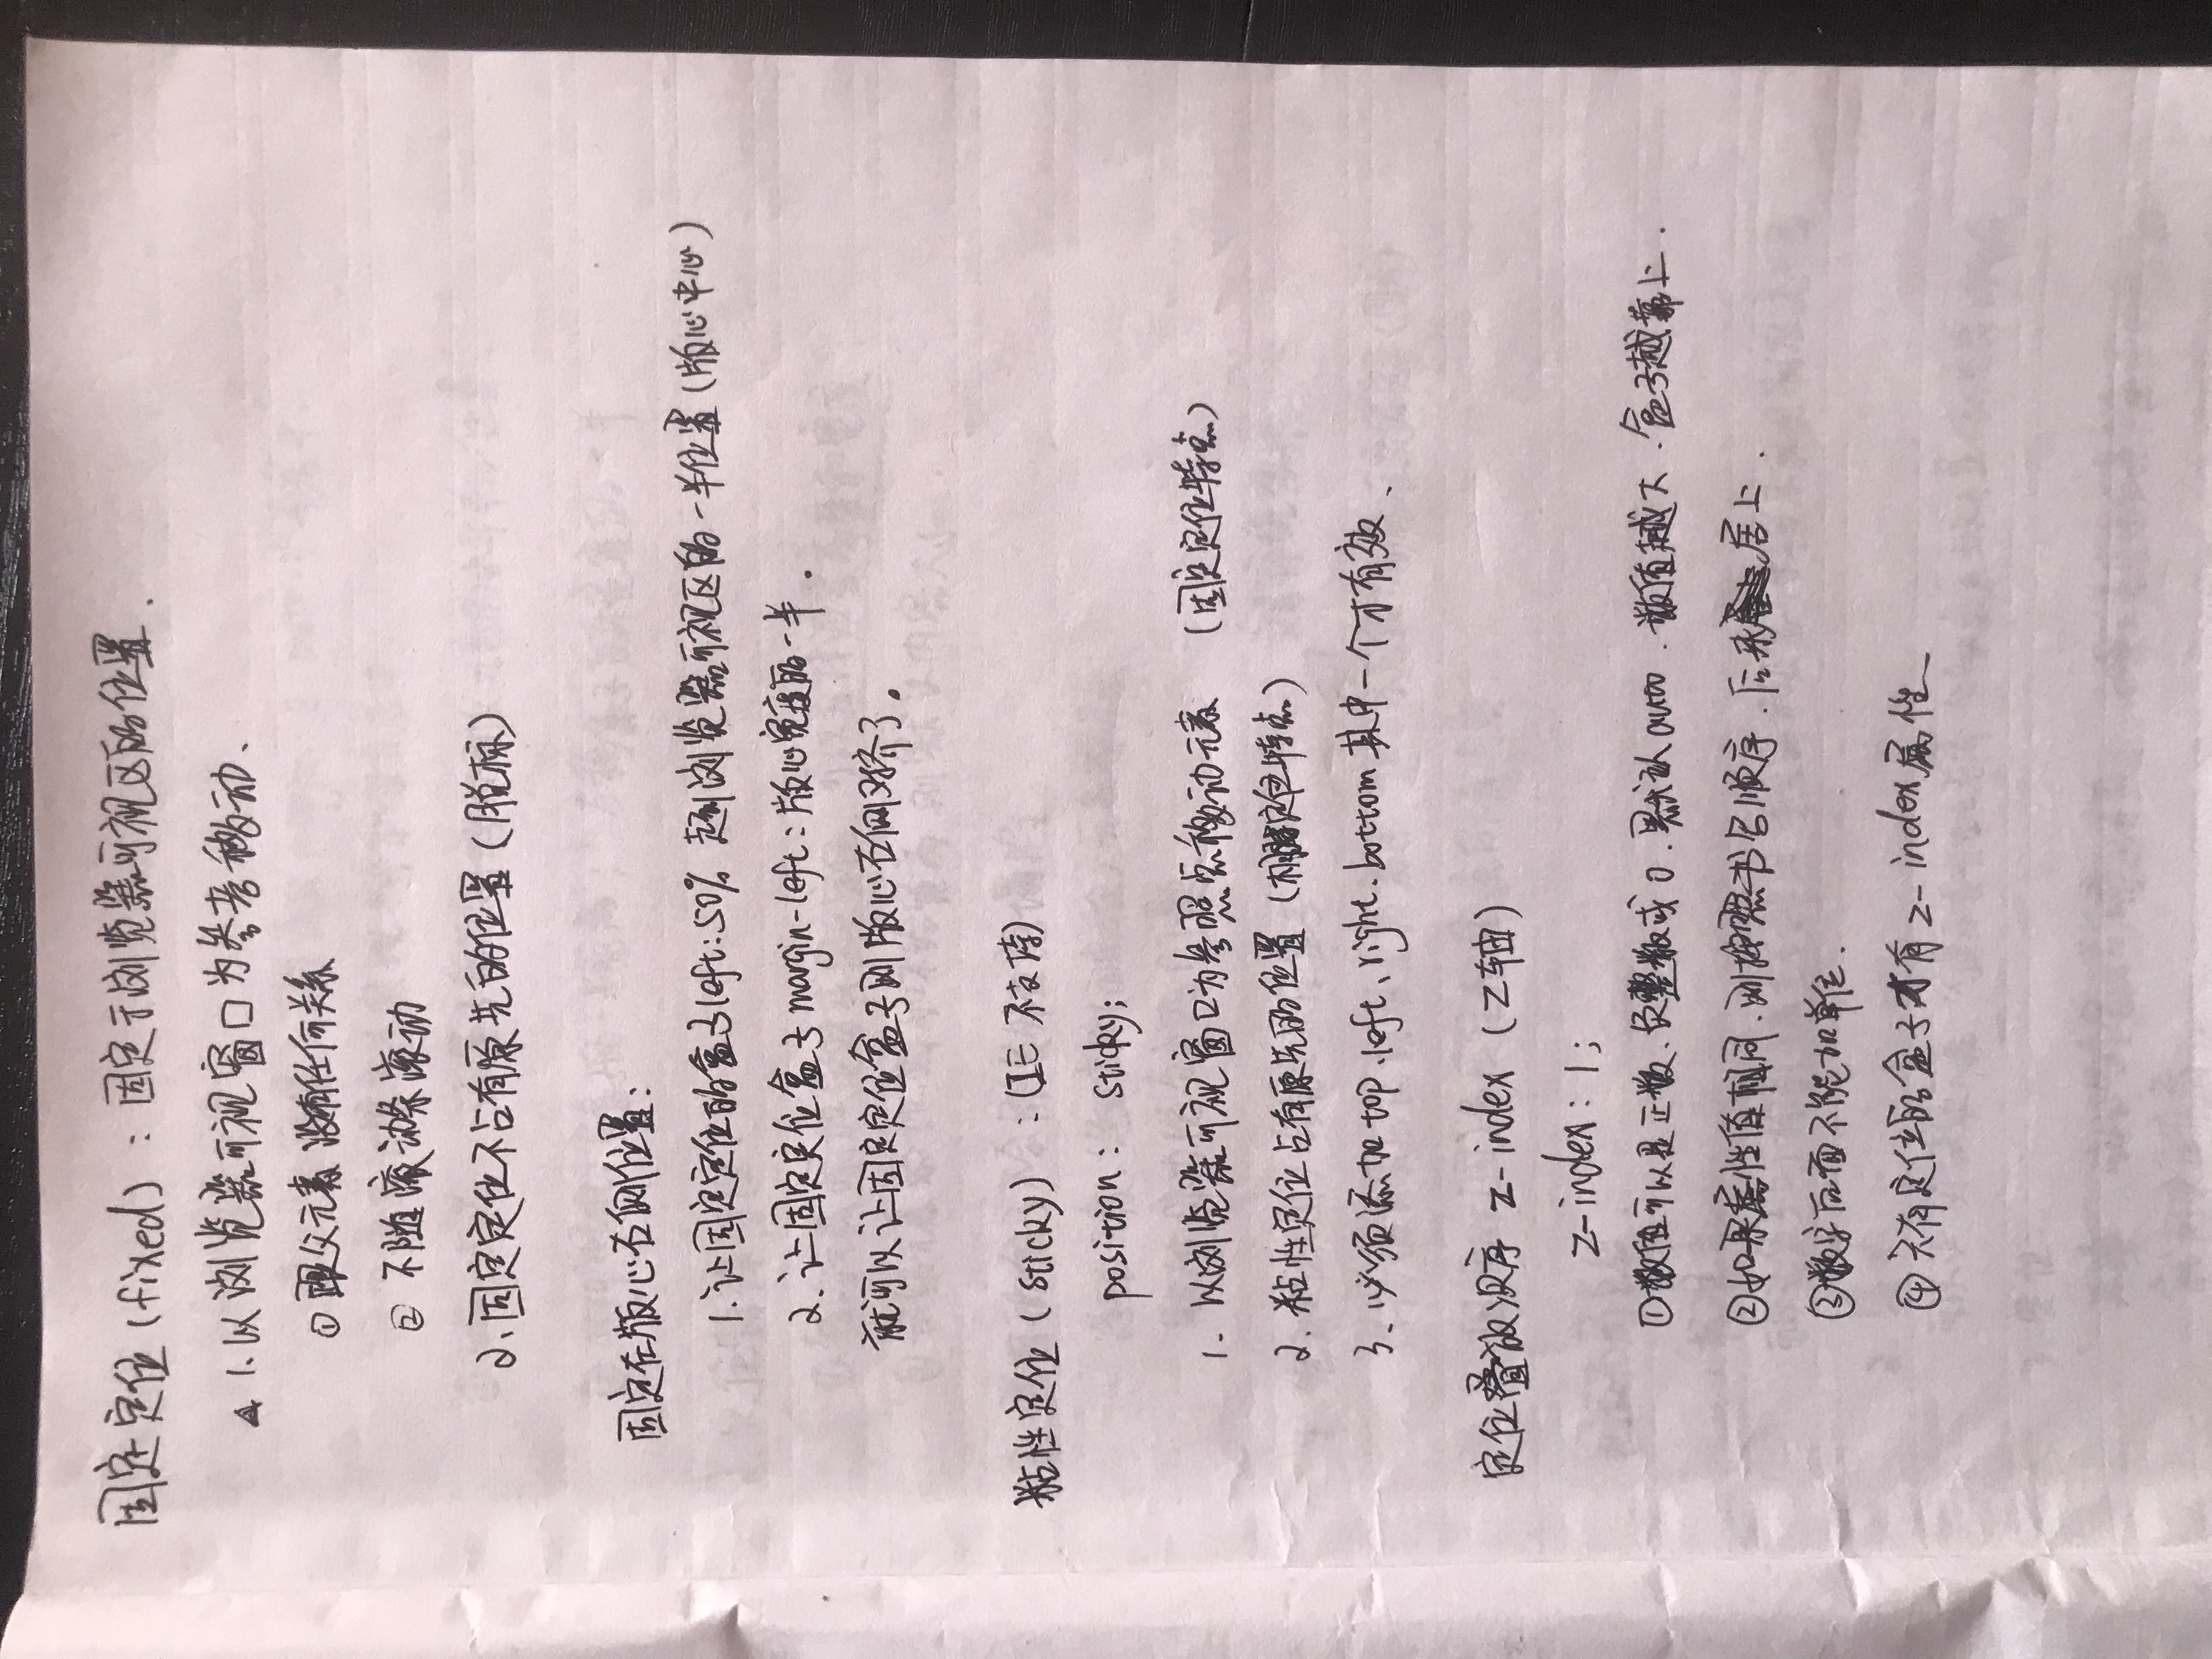 固定定位(fixed)：固定于浏览器可视区的位置.
1.以浏览器可视窗口为参考移动、
① 跟父元素 没有任何关系
② 不随滚动条滚动
2、固定定位不占有原先的位置(脱标)
固定在版心右侧位置：
1.让固定定位的盒子left:50% 走到浏览器可视区的一半位置(版心中心)
2.让固定定位盒子margin-left：版心宽度的一半.
就可以让固定定位盒子刚版心右侧对齐了。
粘性定位(sticky)：(IE 不支持)
position: sticky;
1. 以浏览器可视窗口为参照点移动元素 (固定定位特点)
2. 粘性定位占有原先的位置(相对定位特点)
3、必须添加top、left、right.bottom其中一个才有效、
定位叠放次序 z-index (Z轴)
z-index: 1;
①数值可以是正数、负整数或0.默认auto.数值越大.盒子越靠上.
②如果属性值相同.则按照书写顺序.后来居上.
③数字后面不能加单位.
④只有定位的盒子才有z-index属性